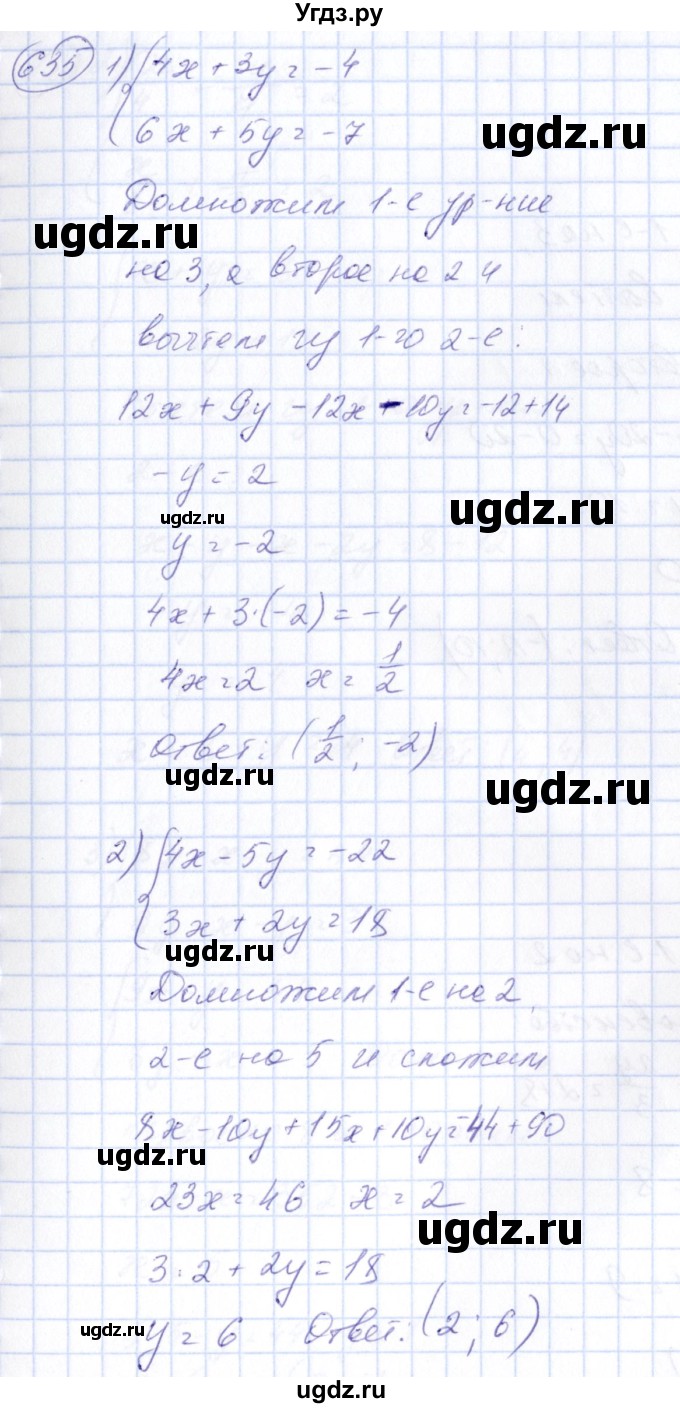 Угдз.ру
635 1) { 4x + 3y = -4
6x + 5y = -7
ugdz.ru
Домножим 1-е ур-ние
ugdz.ru
на 3, а второе на 2 и
вычтем из 1-го 2-е:
12x + 9y - 12x - 10y = -12 + 14
-y = 2
ugdz.ru
ugdz.ru
y = -2
4x + 3·(-2) = -4
4x = 2 x = 1/2
Ответ: (1/2; -2)
ugdz.ru
ugdz.ru
2) { 4x - 5y = -22
3x + 2y = 18
ugdz.ru
Домножим 1-е на 2,
2-е на 5 и сложим
8x - 10y + 15x + 10y = -44 + 90
ugdz.ru
23x = 46 x = 2
ugdz.ru
3·2 + 2y = 18
ugdz.ru
y = 6 Ответ: (2; 6)
ugdz.ru